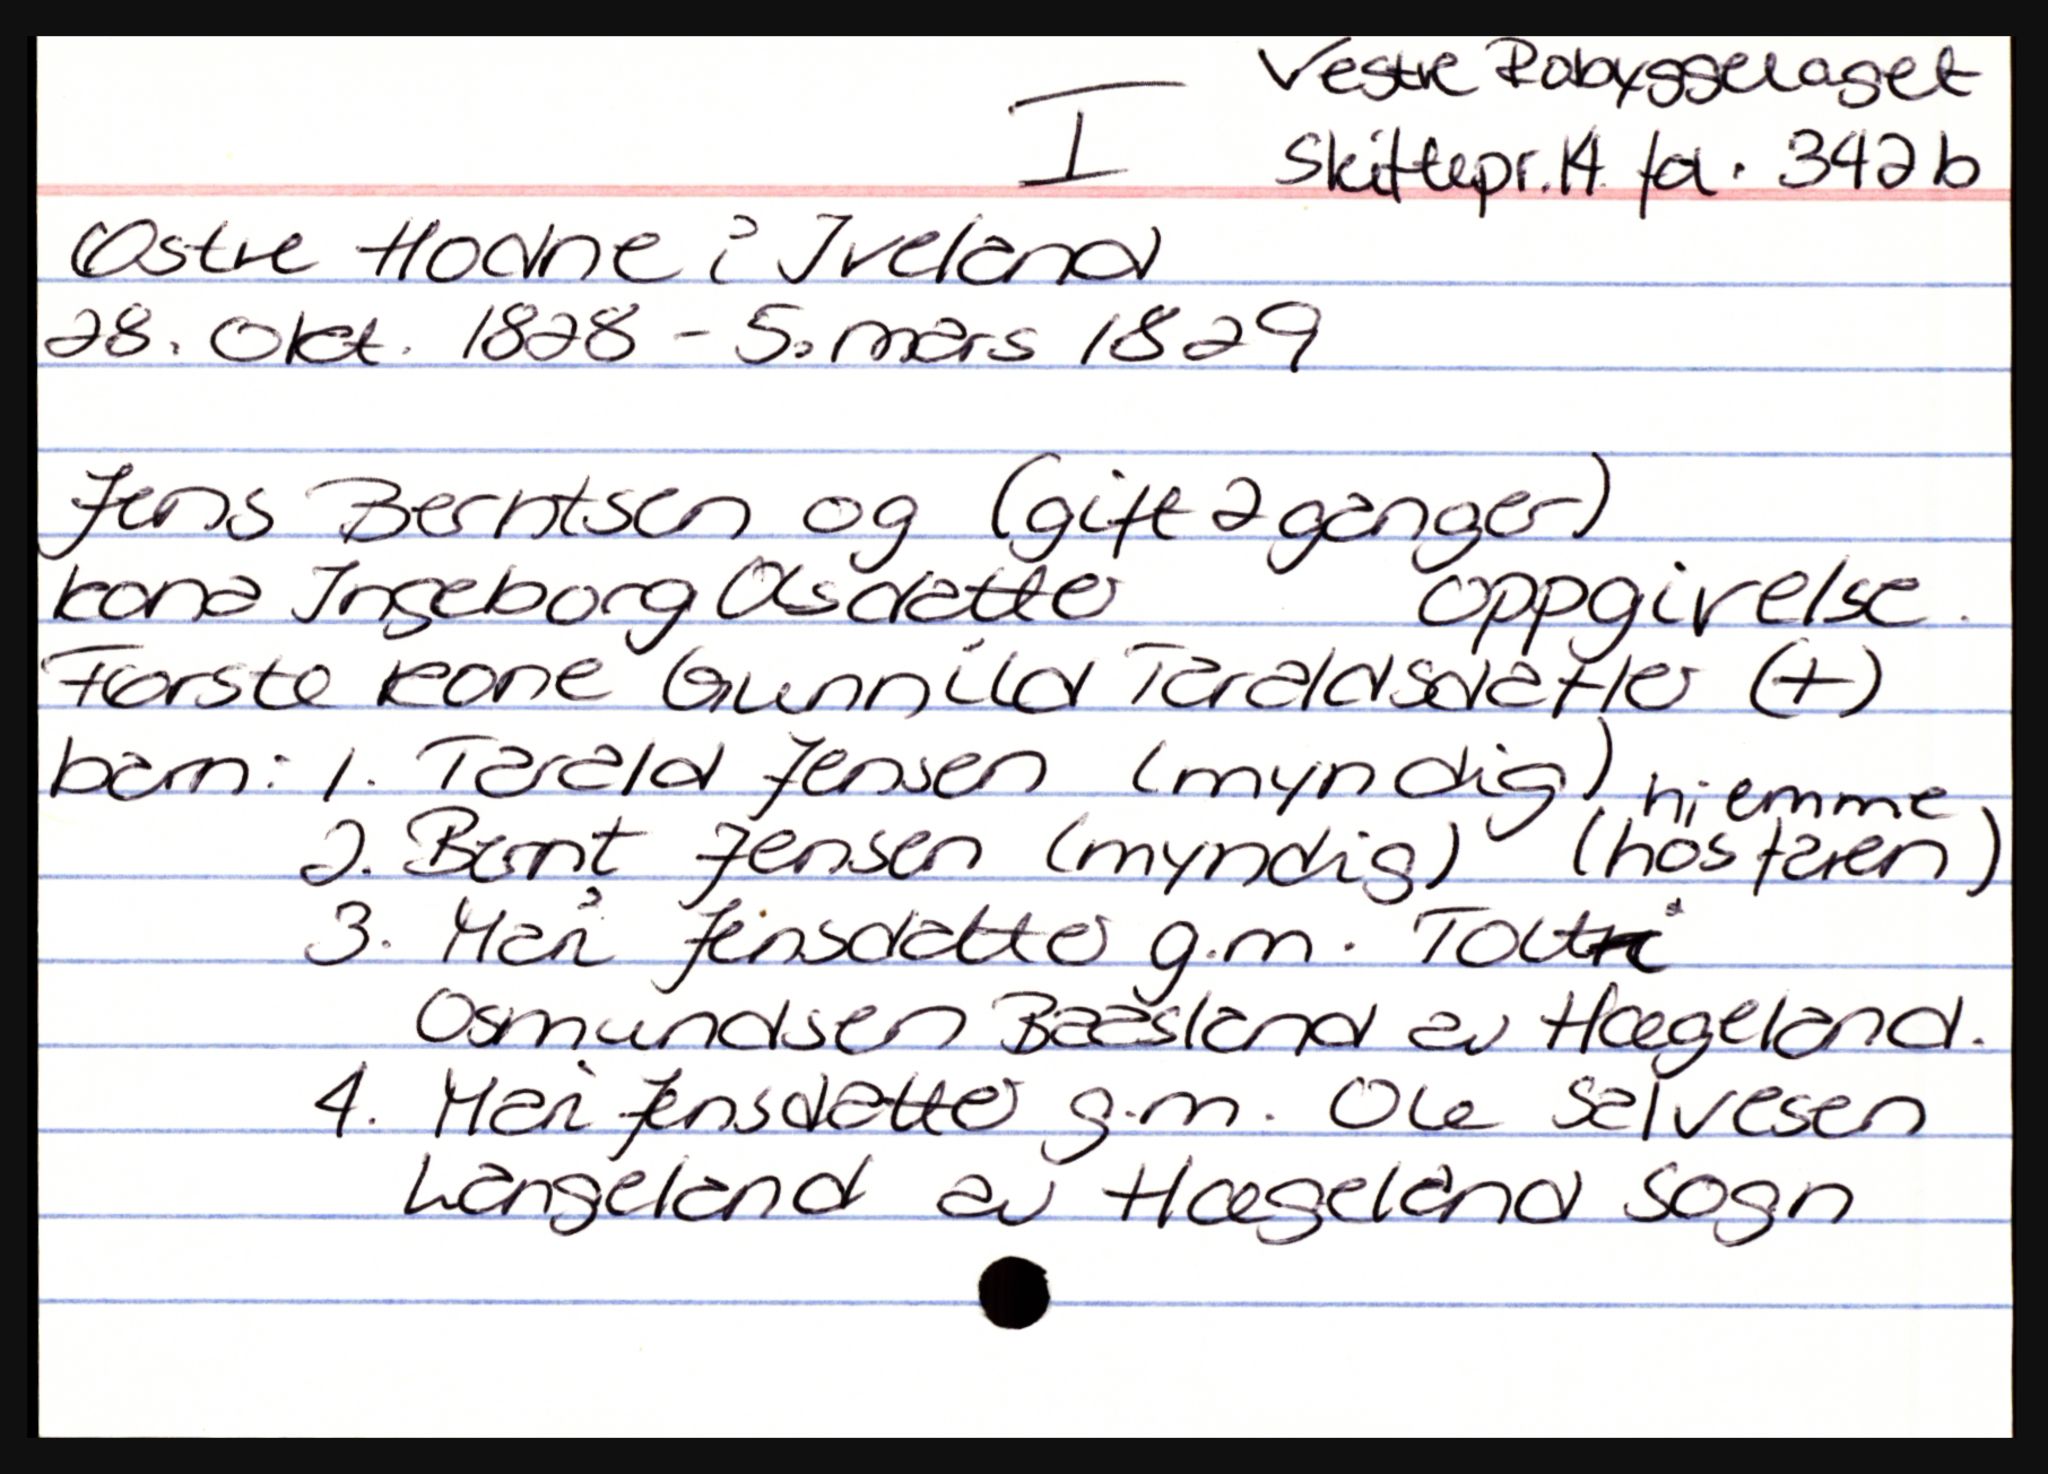 Vestre Robyggelaget
I Skiftepr. 14. fol. 342b
Østre Hodne i Iveland
28. Okt. 1828 - 5. mars 1829
Jens Berntsen og (gift 2 ganger)
kona Ingeborg Olsdatter oppgivelse.
Første kone Gunnild Taraldsdatter (+)
barn: 1. Tarald Jensen (myndig)
2. Bernt Jensen (myndig) hjemme (hos faren)
3. Mari Jensdatter g.m.
Osmundsen Baasland av Hægeland.
4. Mari Jensdatter g.m. Ole Salvesen
Langeland av Hægeland sogn